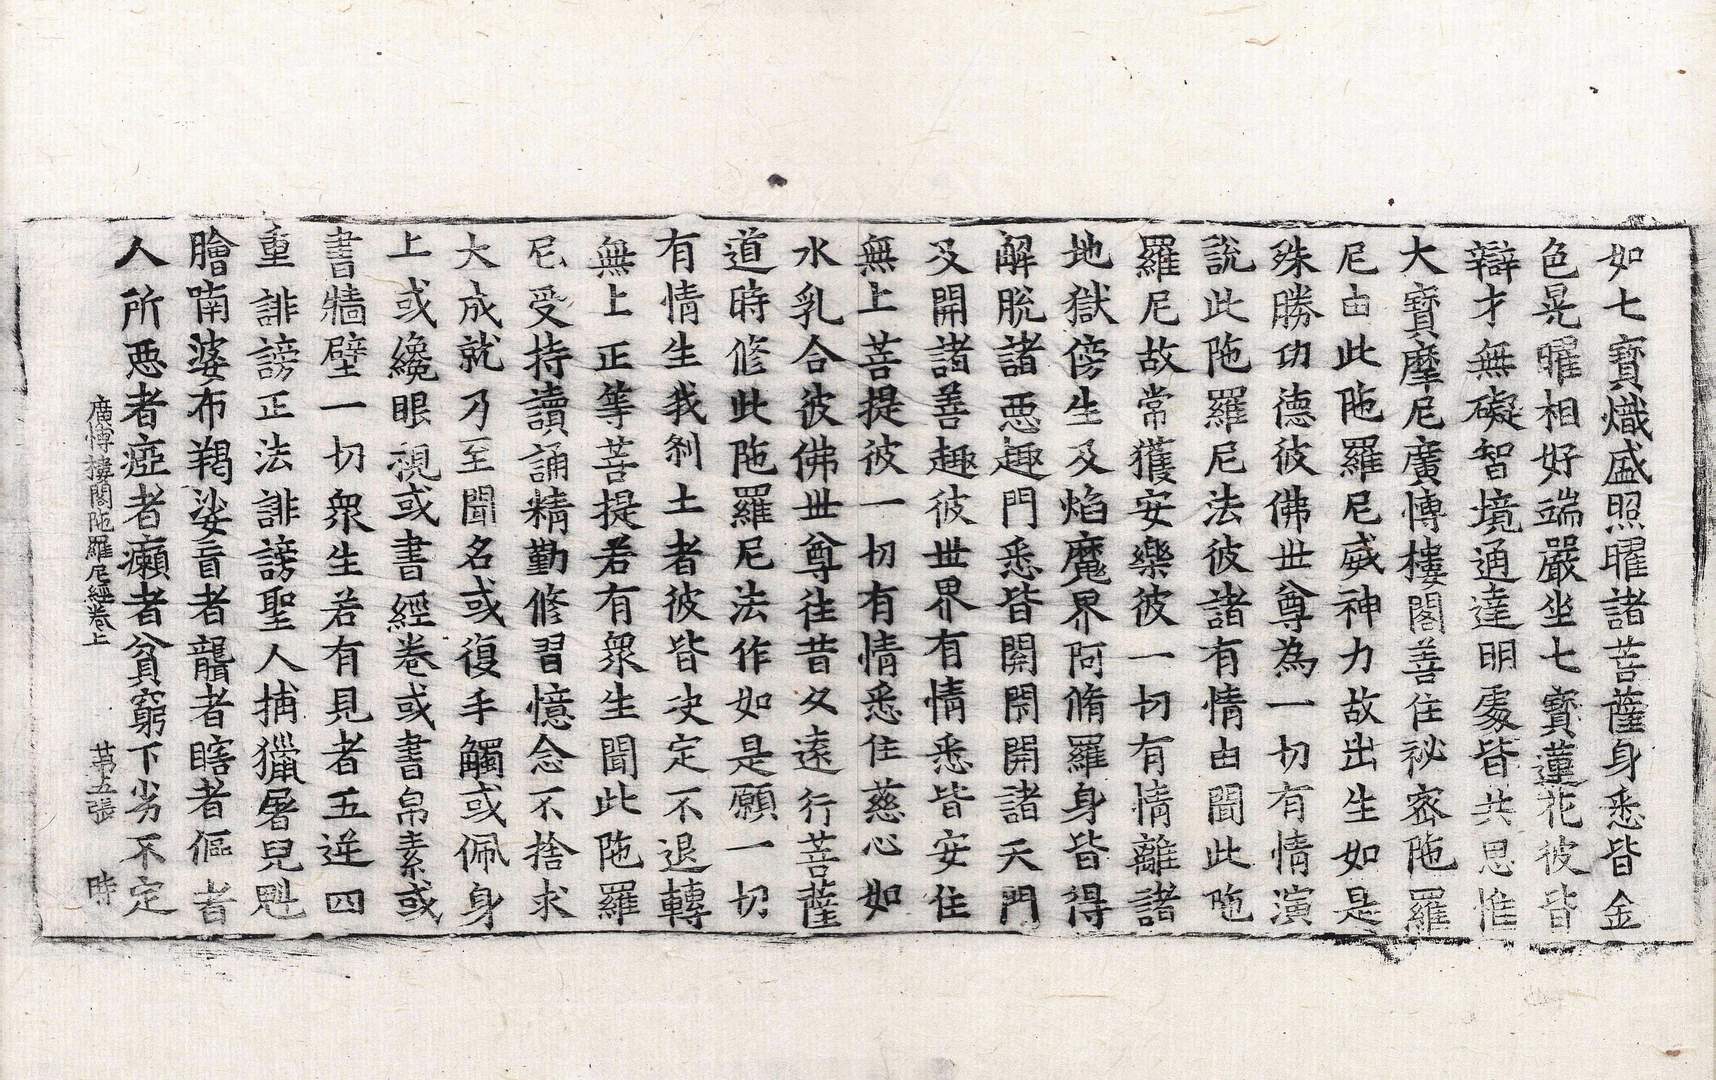 如七寶熾盛照曜諸菩薩身悉皆金
色晃曜相好端嚴坐七寶蓮花彼皆
辯才無礙智境通達明處皆共思惟
大寶摩尼廣愽樓閣善住祕宻陁羅
尼由此陁羅尼威神力故出生如是
殊勝功德彼佛世尊為一切有情演
說此陁羅尼法彼諸有情由聞此陁
羅尼故常獲安樂彼一切有情離諸
地獄傍生及焰魔界阿脩羅身皆得
解脫諸惡趣門悉皆關閇開諸天門
及開諸善趣彼世界有情悉皆安住
無上菩提彼一切有情悉住慈心如
水乳合彼佛世尊往昔久遠行菩薩
道時修此陁羅尼法作如是願一切
有情生我剎土者彼皆決定不退轉
無上正等菩提若有衆生聞此陁羅
尼受持讀誦精勤修習憶念不捨求
大成就乃至聞名或復手觸或佩身
上或纔眼視或書經卷或書帛素或
書牆壁一切衆生若有見者五逆四
重誹謗正法誹謗聖人捕獵屠兒魁
膾喃婆布羯娑盲者聾者瞎者傴者
人所惡者瘂者癩者貧窮下劣不定
廣愽樓閣陁羅尼經卷上 苐五張 時